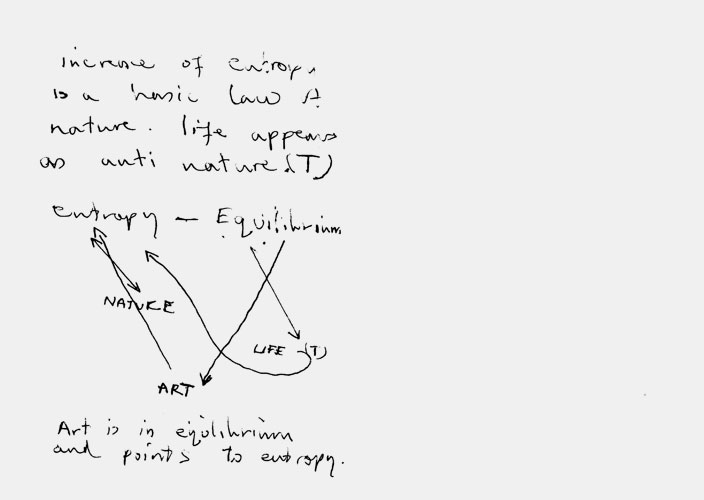 increase of entropy
is a basic law of
nature. life appears
as anti nature (T)
entropy — Equilibrium
NATURE
LIFE (T)
ART
Art is in equilibrium
and points to entropy.